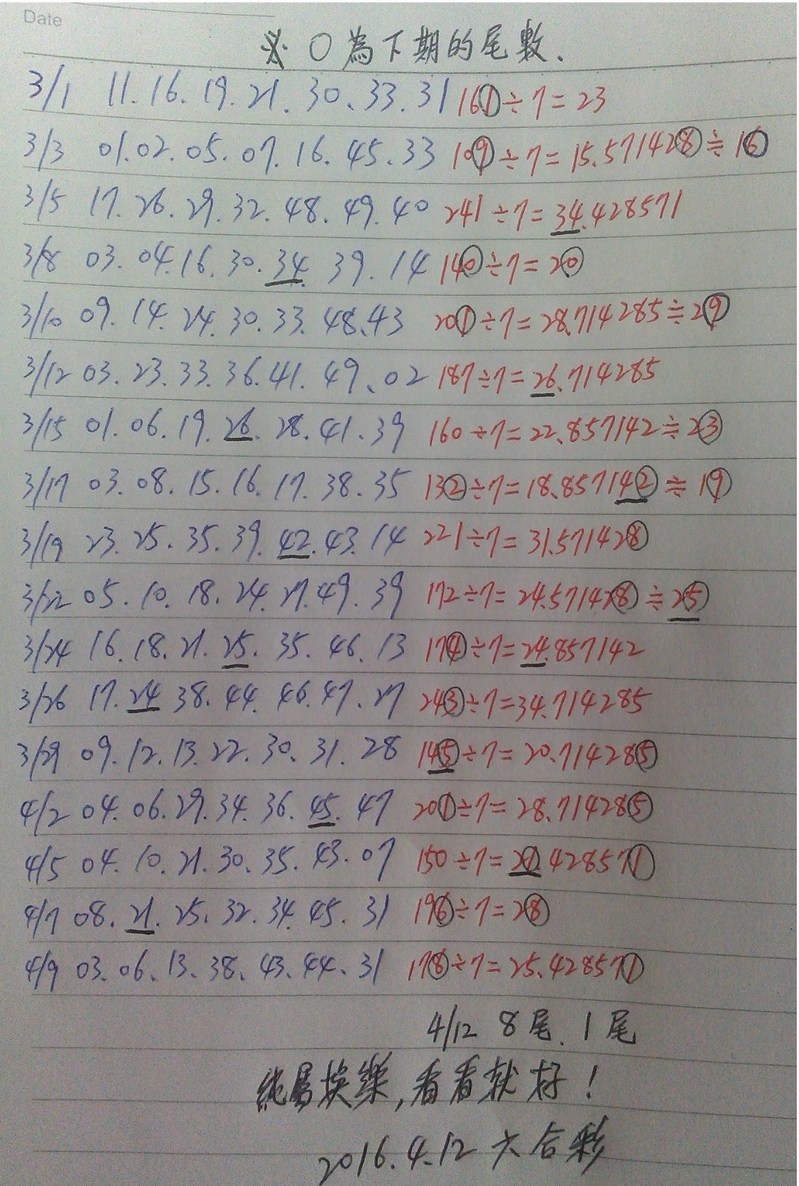 Date
※ ○為下期的尾數、
3/1 11. 16. 19. 21. 30. 33. 31 161÷7=23
3/3 01. 02. 05. 07. 16. 45. 33 109÷7=15.571428≒16
3/5 17. 26. 29. 32. 48. 49. 40 241÷7=34.428571
3/8 03. 04. 16. 30. 34. 39. 14 140÷7=20
3/10 09. 14. 24. 30. 33. 48. 43 201÷7=28.714285≒29
3/12 03. 23. 33. 36. 41. 49、02 187÷7=26.714285
3/15 01. 06. 19. 26. 28. 41. 39 160÷7=22.857142≒23
3/17 03. 08. 15. 16. 17. 38. 35 132÷7=18.857142≒19
3/19 23. 25. 35. 39. 42. 43. 14 221÷7=31.571428
3/22 05. 10. 18. 24. 27. 49. 39 172÷7=24.571428≒25
3/24 16. 18. 21. 25. 35. 46. 13 174÷7=24.857142
3/26 17. 24 38. 44. 46. 47. 27 243÷7=34.714285
3/29 09. 12. 13. 22. 30. 31. 28 145÷7=20.714285
4/2 04. 06. 29. 34. 36. 45. 47 201÷7=28.714285
4/5 04. 10. 21. 30. 35. 43. 07 150÷7=21.428571
4/7 08. 21. 25. 32. 34. 45. 31 196÷7=28
4/9 03. 06. 13. 38. 43. 44. 31 178÷7=25.428571
4/12 8尾、1尾
純屬娛樂,看看就好!
2016.4.12 六合彩